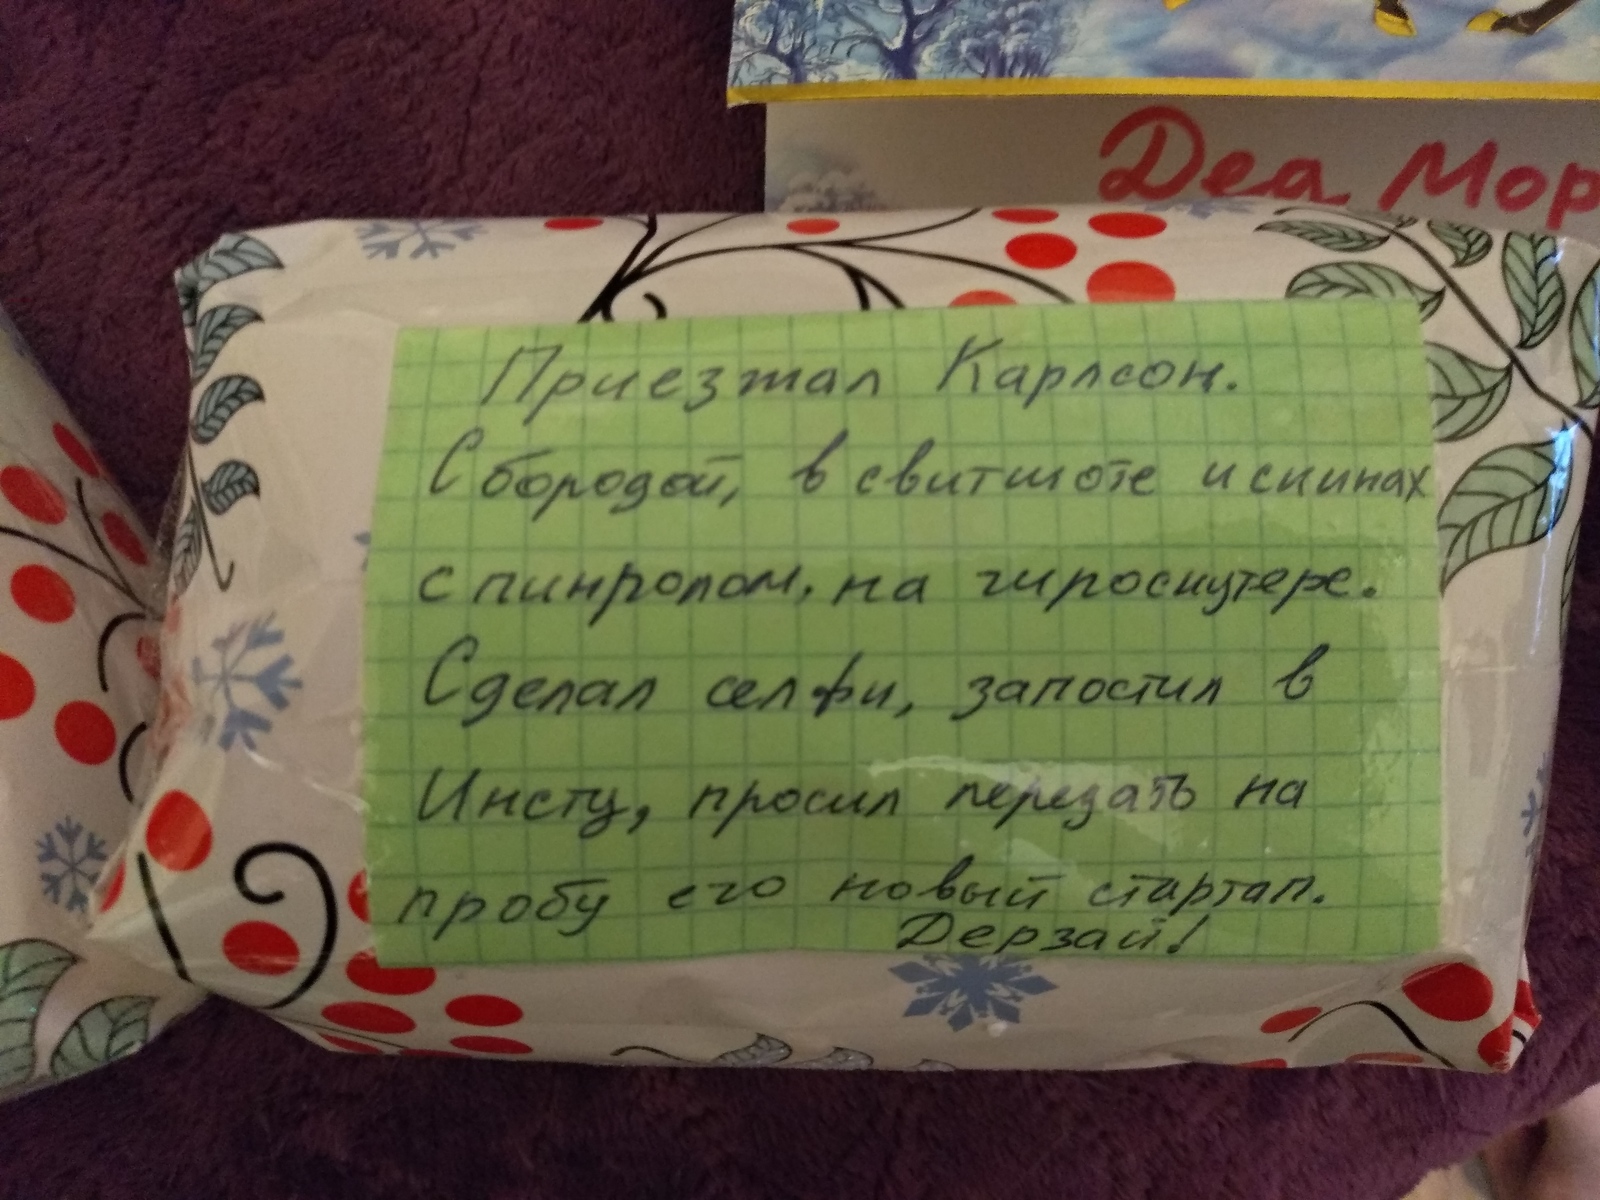 Дед Мор
Приезжал Карлсон.
С бородой, в свитшоте и скинах
с пинролом, на гироскутере.
Сделал селфи, запостил в
Инсту, просил передать на
пробу его новый стартап.
Дерзай!